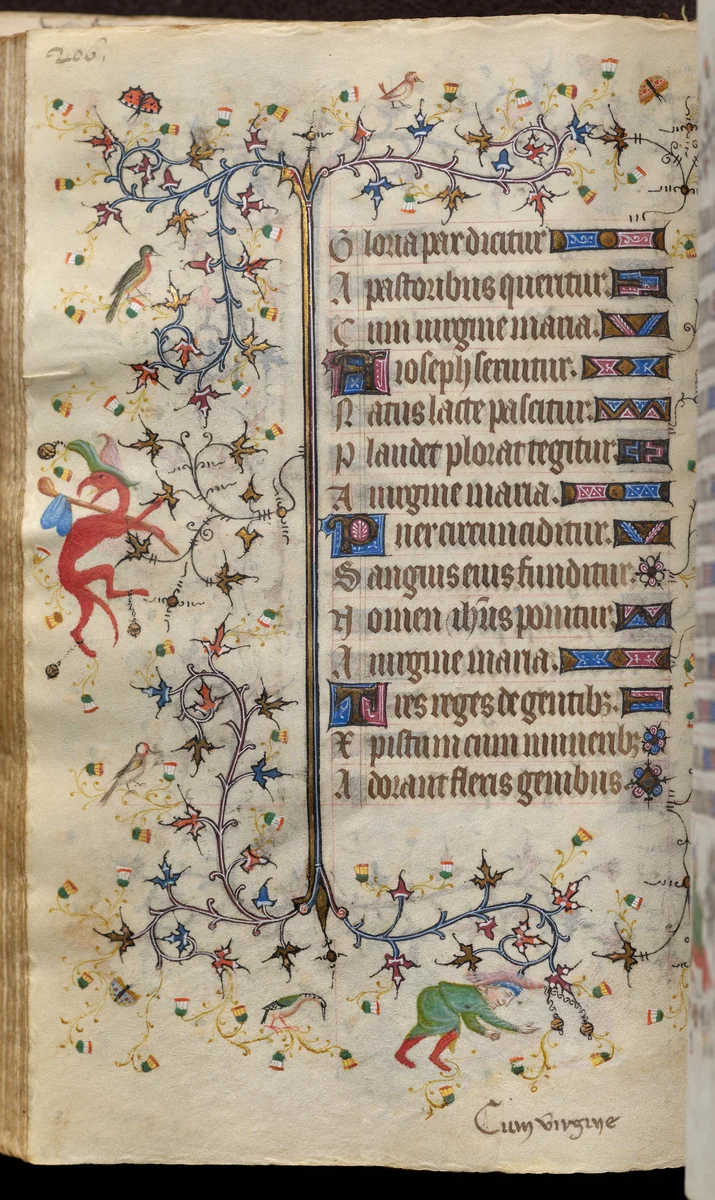 206
Gloria pax dicitur
A pastoribus queritur.
Cum uirgine maria.
A ioseph seruitur.
Natus lacte pascitur.
Plaudet plorat tegitur.
A uirgine maria.
Puer circunciditur.
Sanguis eius funditur.
Nomen ih̅us ponitur.
A uirgine maria.
Tres reges de gentibꝫ.
Xpistum cum muneribꝫ
Adorant flexis genibus
Cum virgine